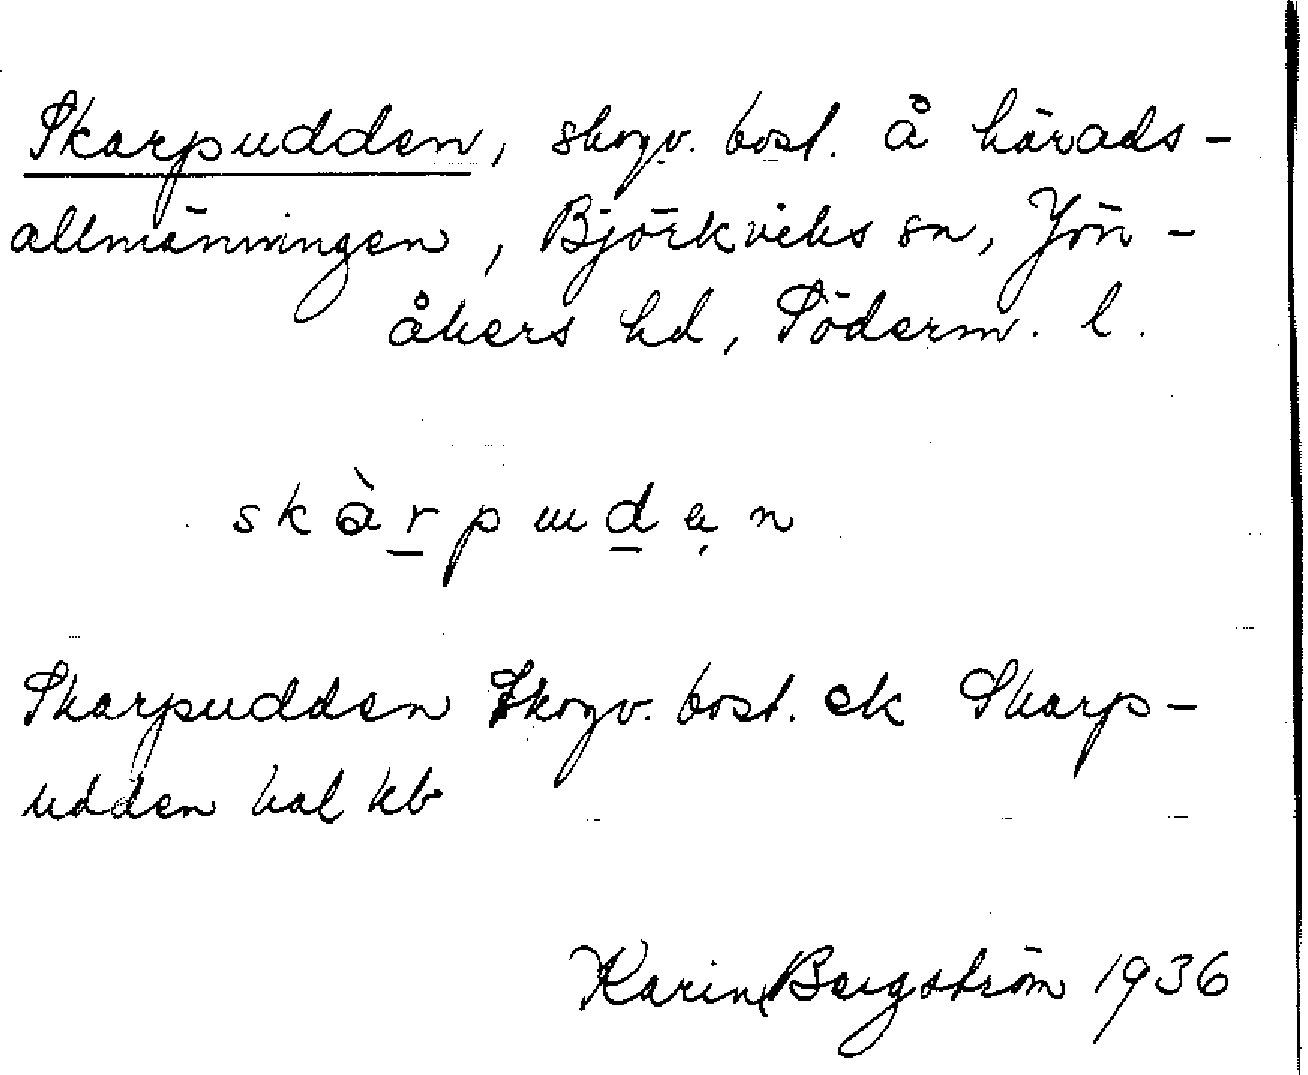 Skarpudden, skogv. bost. å härads-
allmänningen, Björkviks sn, Jön-
åkers hd, Söderm. l.
skàr̲pɯd̲en
Skarpudden Skogv. bost. ek Skarp-
udden hal kb
Karin Bergström 1936